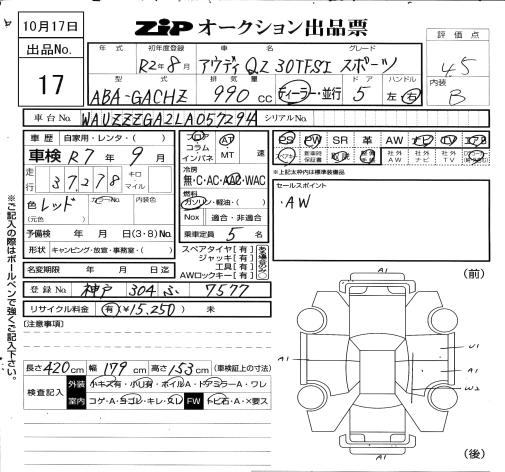 10月17日
ZIP オークション出品票
出品No. 17
評価点 4.5
内装 B
年式 初年度登録 車名 グレード
R2年8月 アウディ Q2 30TFSI スポーツ
型式 排気量 ドア ハンドル
ABA-GACHZ 990cc ディーラー・並行 5 左 右
車台No. WAUZZZGA2LA057294 シリアルNo.
車歴 自家用・レンタ・( )
車検 R7年9月
走行 37,278 キロ マイル
色 レッド カラーNo. 内装色
(元色)
予備検 年 月 日(3・8)No.
形状 キャンピング・放宣・事務室・( )
名変期限 年 月 日迄
コラム AT
インパネ MT 速
冷房
無・C・AC・AAC・WAC
燃料
ガソリン・軽油・( )
Nox 適合・非適合
乗車定員 5 名
スペアタイヤ[有]
ジャッキ[有]
工具[有]
AWロックキー[有]
PS PW SR 革 AW ナビ TV エアB
スペアキ 新車時保証書 取説 記録簿 社外AW 社外ナビ 社外TV
*上記太枠内は標準装備品
セールスポイント
・AW
登録No. 神戸 304 ふ 7577
リサイクル料金 有(¥15,250) 未
[注意事項]
長さ420cm 幅179cm 高さ153cm (車検証上の寸法)
検査記入 外装 キズ有・小凹有・ホイルA・ドアミラーA・ワレ
室内 コゲ・A・ヨゴレ・キレ・スレ FW トビ石・A・X要ス
※ご記入の際はボールペンで強くご記入下さい。
(前)
A1
A1
U1
A1
W2
A1
(後)